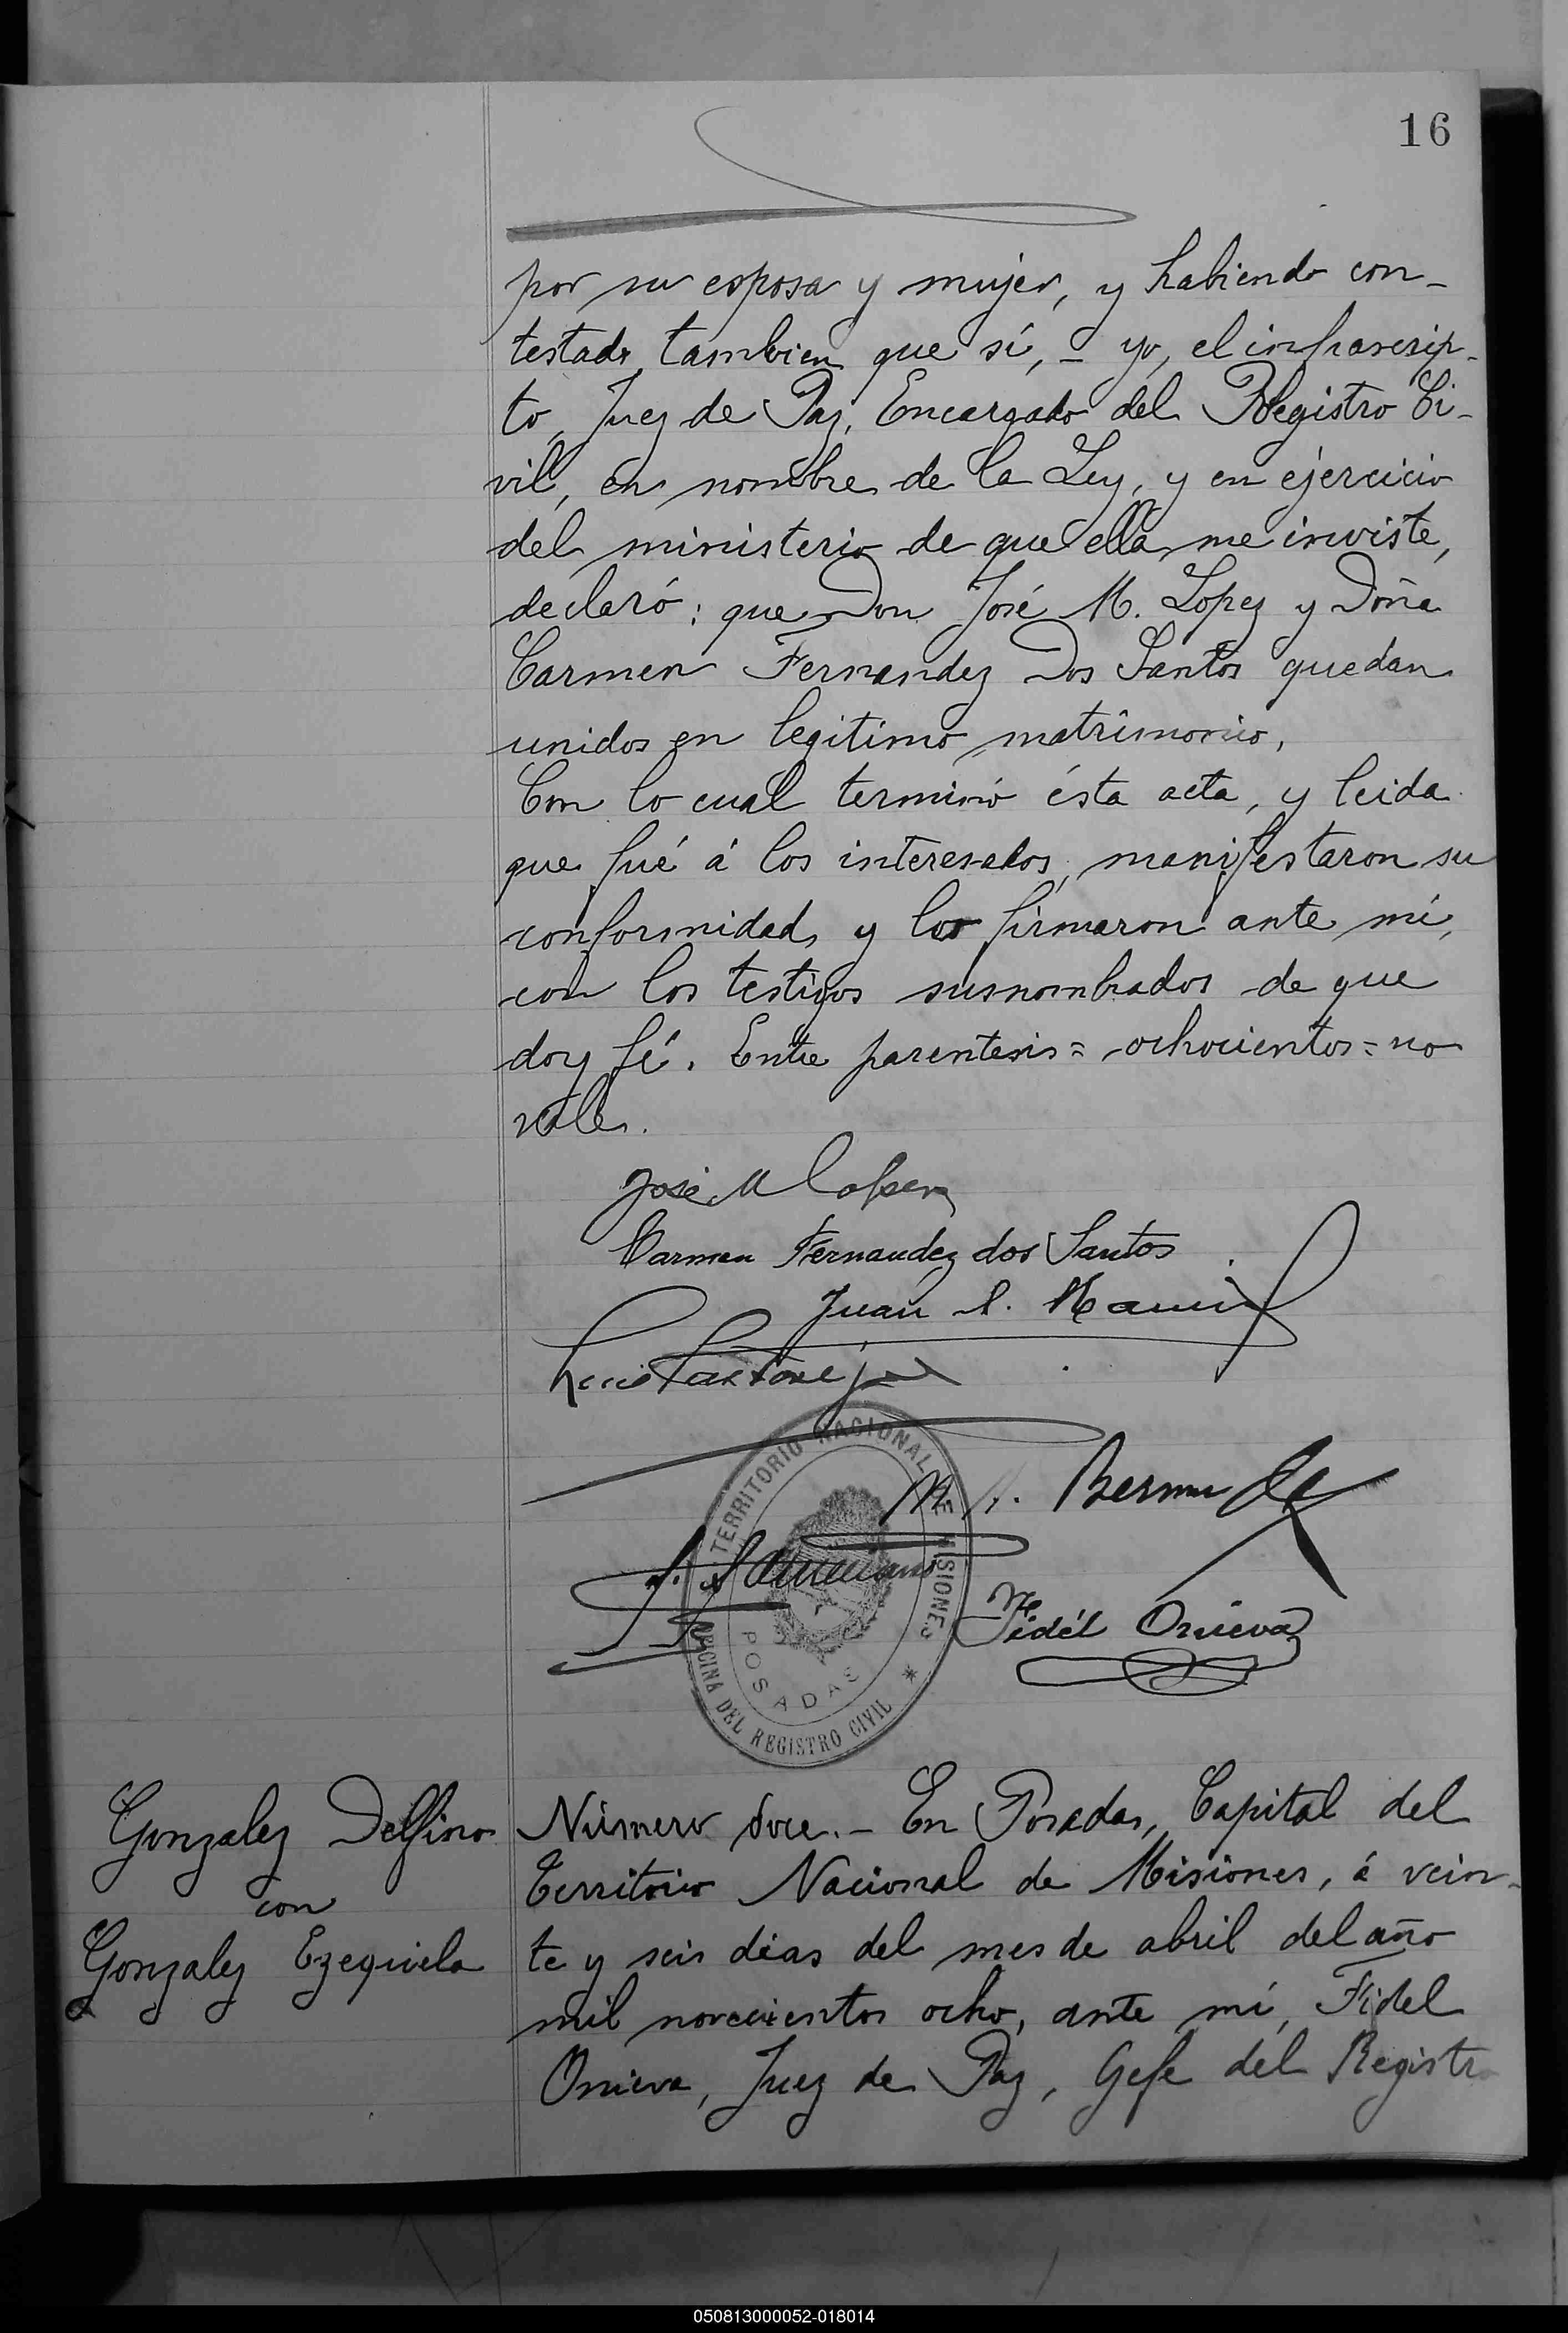 16
por su esposa y mujer, y habiendo con-
testado tambien que sí, - yo, el infrascrip-
to, Juez de Paz, Encargado del Registro Ci-
vil, en nombre de la Ley, y en ejercicio
del ministerio de que ella me inviste,
declaró: que Don José M. Lopez y Doña
Carmen Fernandez Dos Santos quedan
unidos en legitimo matrimonio.
Con lo cual terminó ésta acta, y leida
que fué á los interesados, manifestaron su
conformidad, y los firmaron ante mí,
con los testigos susnombrados de que
doy fé. Entre parentesis = ochocientos = no
vale.
José M Lopez
Carmen Fernandez dos Santos
Juan
Luis
TERRITORIO NACIONAL DE MISIONES
M. Bermudez
Fidél Onieva
POSADAS
OFICINA DEL REGISTRO CIVIL
Gonzalez Delfino
con
Gonzalez Ezequiela
Número doce.- En Posadas, Capital del
Territorio Nacional de Misiones, á vein-
te y seis dias del mes de abril del año
mil novecientos ocho, ante mí, Fidel
Onieva, Juez de Paz, Gefe del Registro
050813000052-018014